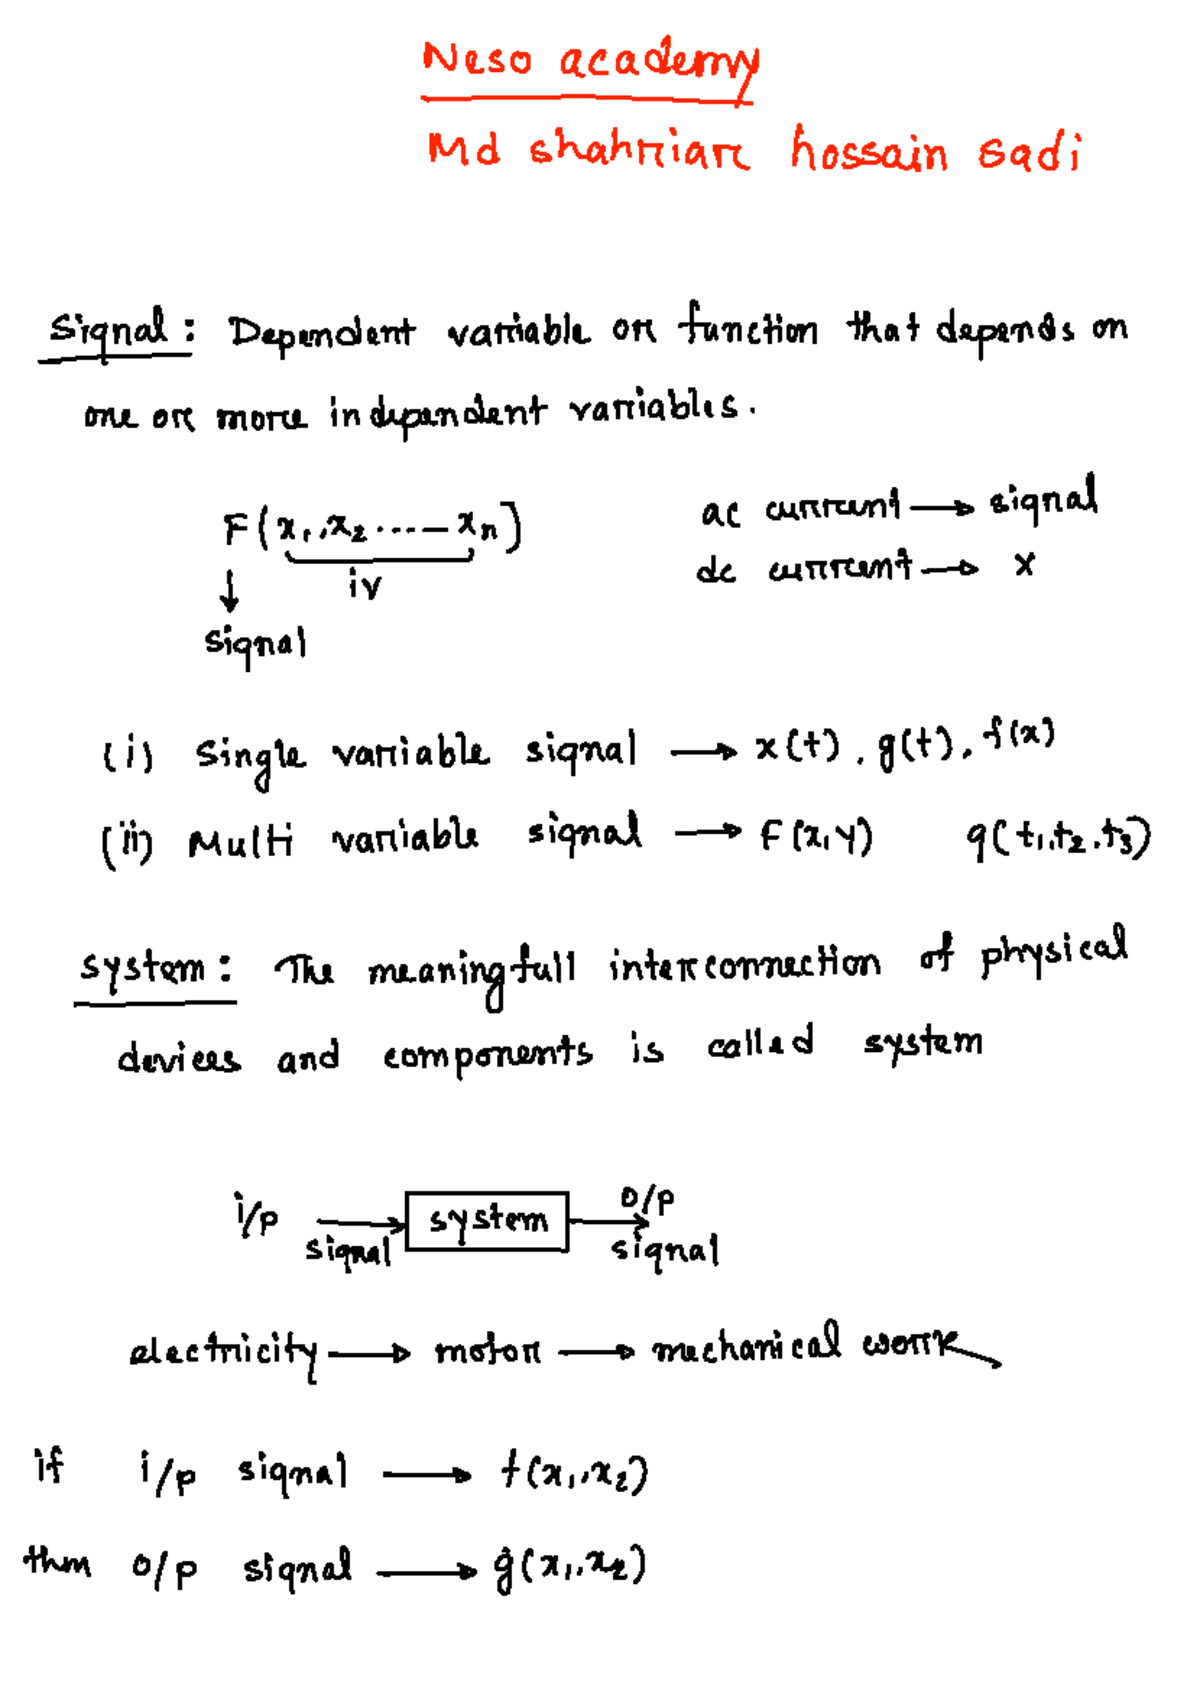 Neso academy
Md shahriar hossain sadi
Signal: Dependent variable or function that depends on
one or more independent variables.
F(x₁,x₂ ....– xₙ)
iv
↓
signal
ac current → signal
dc current → x
(i) Single variable signal → x(t), g(t), f(x)
(ii) Multi variable signal → F(x,y) g(t₁,t₂,t₃)
system: The meaningfull interconnection of physical
devices and components is called system
i/p signal → system → o/p signal
electricity → motor → mechanical work
if i/p signal → f(x₁,x₂)
then o/p signal → g(x₁,x₂)